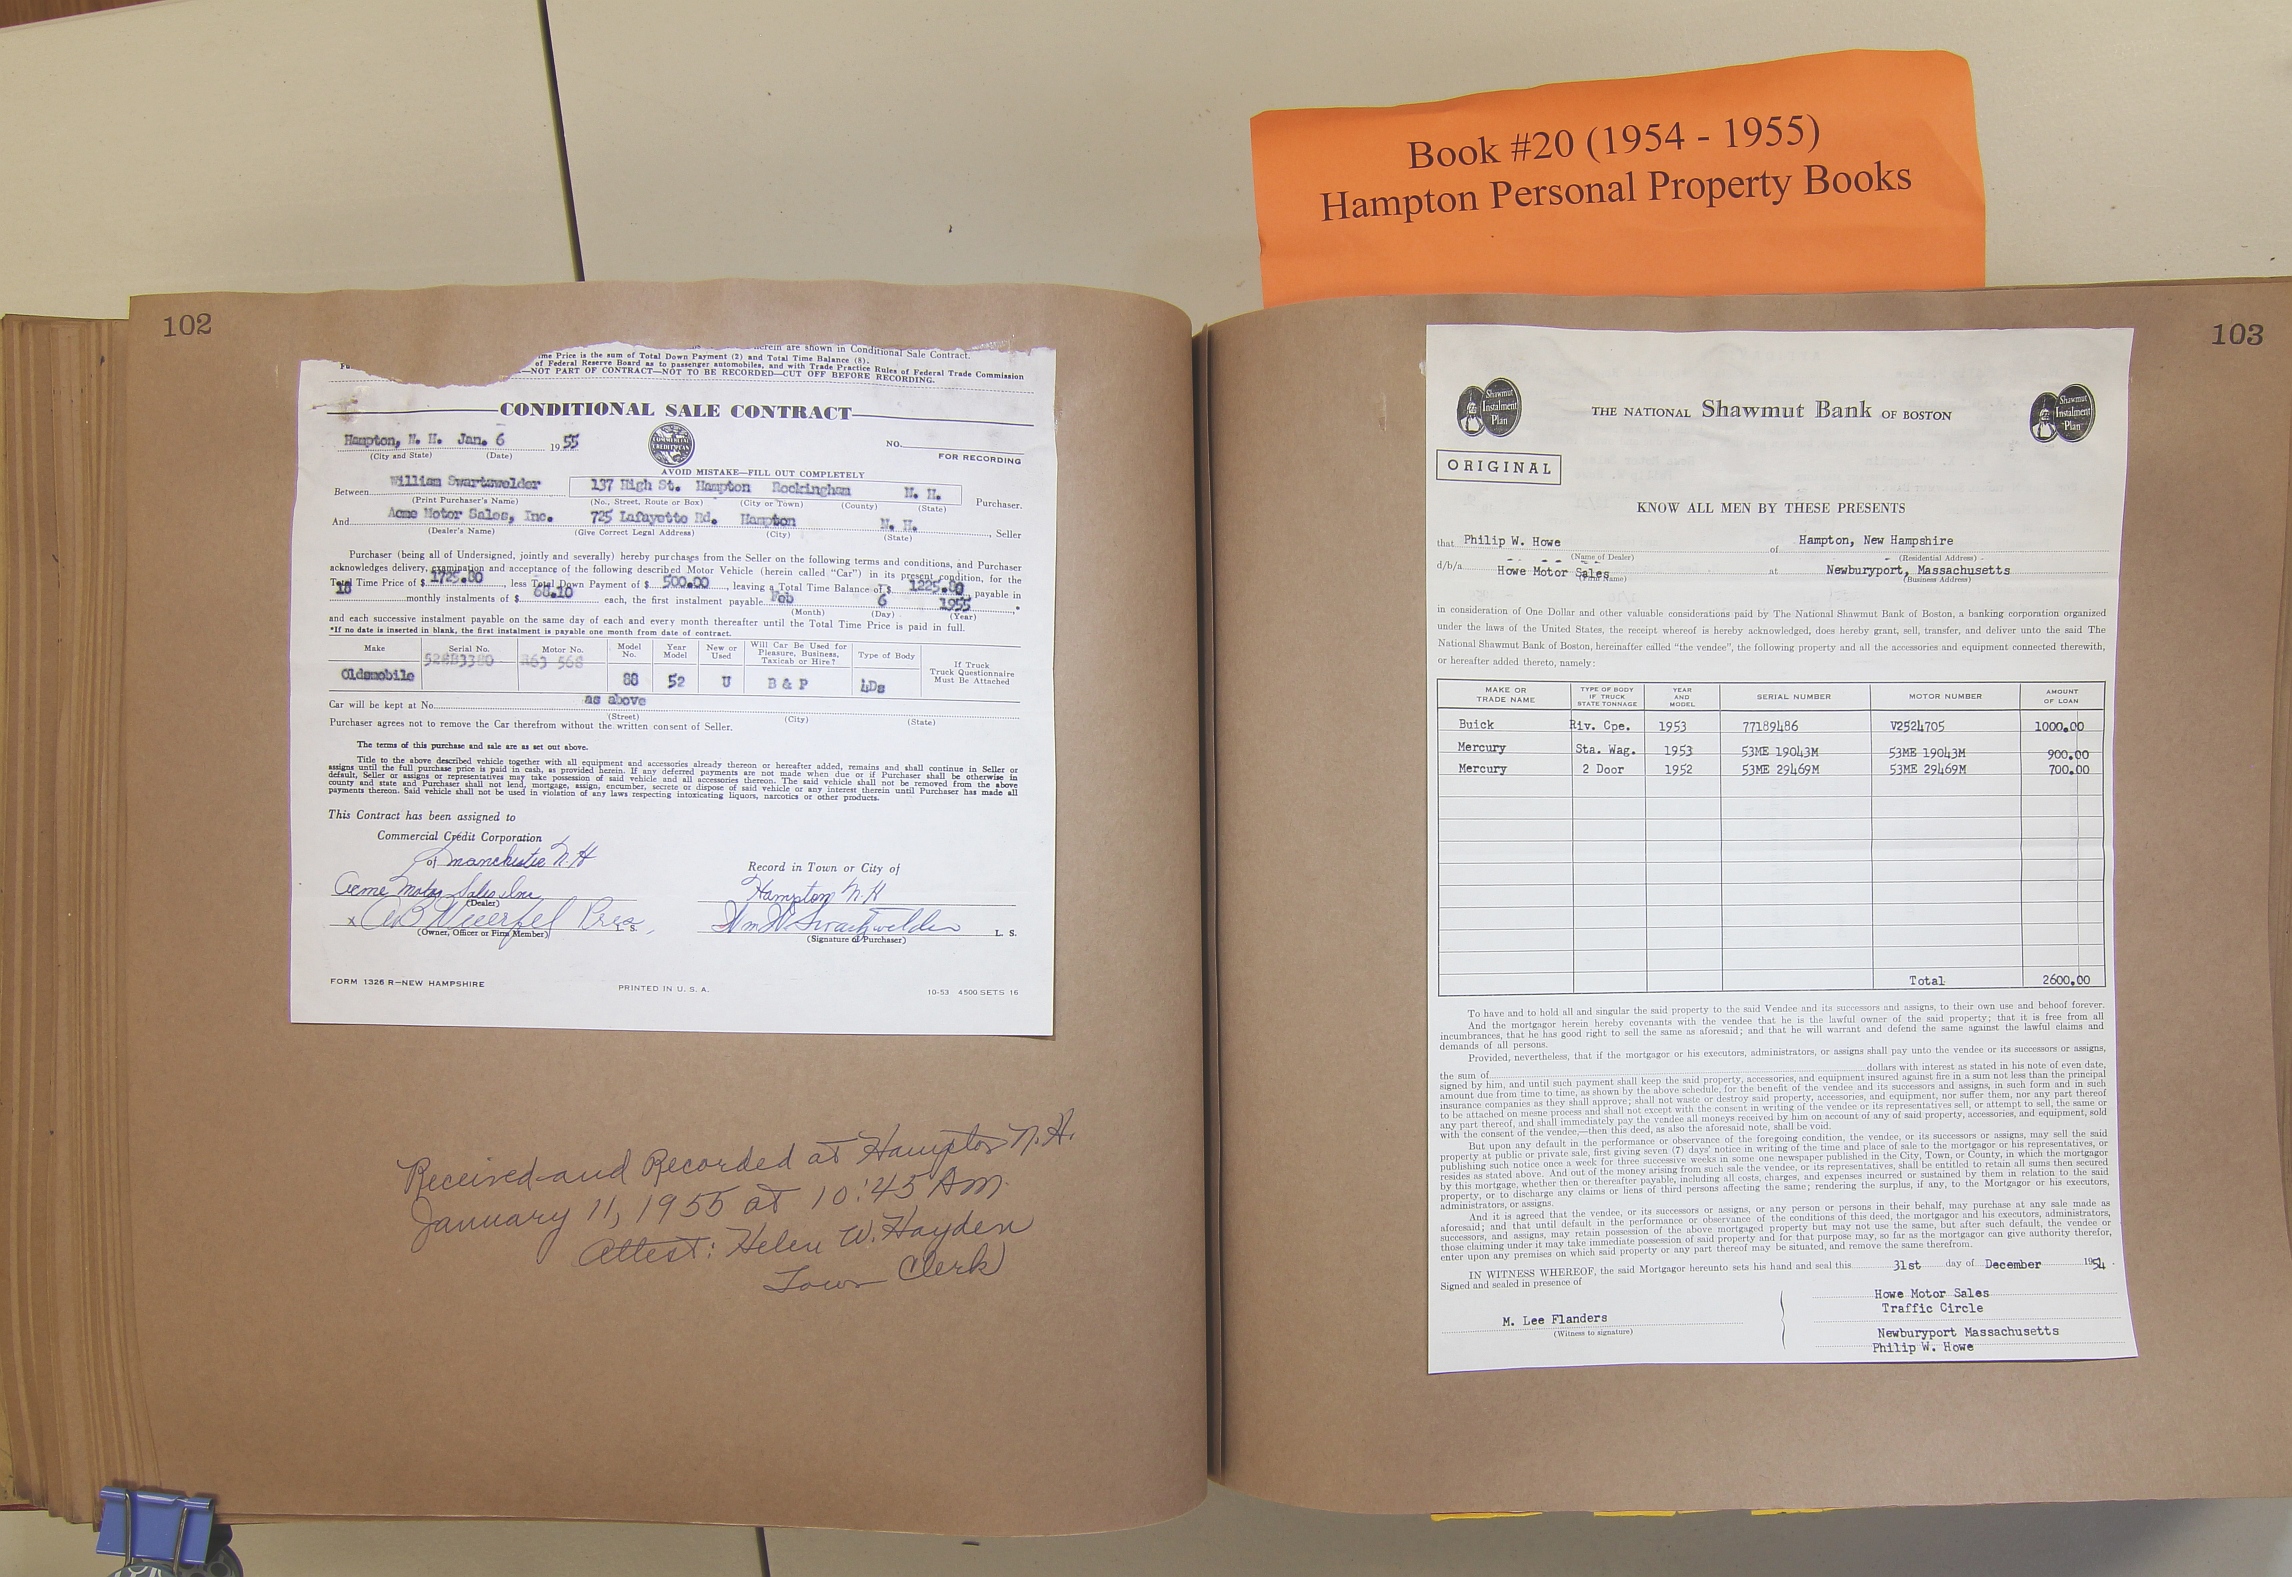 Book #20 (1954 - 1955)
Hampton Personal Property Books
102
herein are shown in Conditional Sale Contract.
me Price is the sum of Total Down Payment (2) and Total Time Balance (8).
of Federal Reserve Board as to passenger automobiles, and with Trade Practice Rules of Federal Trade Commission
—NOT PART OF CONTRACT—NOT TO BE RECORDED—CUT OFF BEFORE RECORDING.
CONDITIONAL SALE CONTRACT
Hampton, N. H. Jan. 6 1955
(City and State) (Date)
COMMERCIAL CREDIT
NO.
FOR RECORDING
AVOID MISTAKE—FILL OUT COMPLETELY
Between William Swartzwelder 137 High St. Hampton Rockingham N. H. Purchaser.
(Print Purchaser's Name) (No., Street, Route or Box) (City or Town) (County) (State)
And Acme Motor Sales, Inc. 725 Lafayette Rd. Hampton N. H., Seller
(Dealer's Name) (Give Correct Legal Address) (City) (State)
Purchaser (being all of Undersigned, jointly and severally) hereby purchases from the Seller on the following terms and conditions, and Purchaser
acknowledges delivery, examination and acceptance of the following described Motor Vehicle (herein called "Car") in its present condition, for the
Total Time Price of $ 1725.80, less Total Down Payment of $ 500.00, leaving a Total Time Balance of $ 1225.80, payable in
18 monthly instalments of $ 68.10 each, the first instalment payable Feb 6 1955.*
(Month) (Day) (Year)
and each successive instalment payable on the same day of each and every month thereafter until the Total Time Price is paid in full.
*If no date is inserted in blank, the first instalment is payable one month from date of contract.
Make Serial No. Motor No. Model No. Year Model New or Used Will Car Be Used for Pleasure, Business, Taxicab or Hire? Type of Body If Truck Truck Questionnaire Must Be Attached
Oldsmobile 528B3380 R63 566 88 52 U B & P 4Ds
Car will be kept at No. as above
(Street) (City) (State)
Purchaser agrees not to remove the Car therefrom without the written consent of Seller.
The terms of this purchase and sale are as set out above.
Title to the above described vehicle together with all equipment and accessories already thereon or hereafter added, remains and shall continue in Seller or
assigns until the full purchase price is paid in cash, as provided herein. If any deferred payments are not made when due or if Purchaser shall be otherwise in
default, Seller or assigns or representatives may take possession of said vehicle and all accessories thereon. The said vehicle shall not be removed from the above
county and state and Purchaser shall not lend, mortgage, assign, encumber, secrete or dispose of said vehicle or any interest therein until Purchaser has made all
payments thereon. Said vehicle shall not be used in violation of any laws respecting intoxicating liquors, narcotics or other products.
This Contract has been assigned to
Commercial Credit Corporation
of Manchester N.H
Record in Town or City of
Acme Motor Sales Inc
Hampton N.H
(Dealer)
x Pres. L. S.
Wm W. Swartzwelder L. S.
(Owner, Officer or Firm Member)
(Signature of Purchaser)
FORM 1326 R—NEW HAMPSHIRE PRINTED IN U. S. A. 10-53 4500 SETS 16
Received and Recorded at Hampton N.H.
January 11, 1955 at 10:45 Am.
Attest: Helen W. Hayden
Town Clerk
103
Shawmut Instalment Plan
THE NATIONAL Shawmut Bank OF BOSTON
Shawmut Instalment Plan
ORIGINAL
KNOW ALL MEN BY THESE PRESENTS
that Philip W. Howe of Hampton, New Hampshire
(Name of Dealer) (Residential Address)
d/b/a Howe Motor Sales at Newburyport, Massachusetts
(Firm Name) (Business Address)
in consideration of One Dollar and other valuable considerations paid by The National Shawmut Bank of Boston, a banking corporation organized
under the laws of the United States, the receipt whereof is hereby acknowledged, does hereby grant, sell, transfer, and deliver unto the said The
National Shawmut Bank of Boston, hereinafter called "the vendee", the following property and all the accessories and equipment connected therewith,
or hereafter added thereto, namely:
MAKE OR TRADE NAME TYPE OF BODY IF TRUCK STATE TONNAGE YEAR AND MODEL SERIAL NUMBER MOTOR NUMBER AMOUNT OF LOAN
Buick Riv. Cpe. 1953 77189486 V2524705 1000.00
Mercury Sta. Wag. 1953 53ME 19043M 53ME 19043M 900.00
Mercury 2 Door 1952 53ME 29469M 53ME 29469M 700.00
Total 2600.00
To have and to hold all and singular the said property to the said Vendee and its successors and assigns, to their own use and behoof forever.
And the mortgagor herein hereby covenants with the vendee that he is the lawful owner of the said property; that it is free from all
incumbrances, that he has good right to sell the same as aforesaid; and that he will warrant and defend the same against the lawful claims and
demands of all persons.
Provided, nevertheless, that if the mortgagor or his executors, administrators, or assigns shall pay unto the vendee or its successors or assigns,
the sum of dollars with interest as stated in his note of even date,
signed by him, and until such payment shall keep the said property, accessories, and equipment insured against fire in a sum not less than the principal
amount due from time to time, as shown by the above schedule, for the benefit of the vendee and its successors and assigns, in such form and in such
insurance companies as they shall approve; shall not waste or destroy said property, accessories, and equipment, nor suffer them, nor any part thereof
to be attached on mesne process and shall not except with the consent in writing of the vendee or its representatives sell, or attempt to sell, the same or
any part thereof, and shall immediately pay the vendee all moneys received by him on account of any of said property, accessories, and equipment, sold
with the consent of the vendee,—then this deed, as also the aforesaid note, shall be void.
But upon any default in the performance or observance of the foregoing condition, the vendee, or its successors or assigns, may sell the said
property at public or private sale, first giving seven (7) days' notice in writing of the time and place of sale to the mortgagor or his representatives, or
publishing such notice once a week for three successive weeks in some one newspaper published in the City, Town, or County, in which the mortgagor
resides as stated above. And out of the money arising from such sale the vendee, or its representatives, shall be entitled to retain all sums then secured
by this mortgage, whether then or thereafter payable, including all costs, charges, and expenses incurred or sustained by them in relation to the said
property, or to discharge any claims or liens of third persons affecting the same; rendering the surplus, if any, to the Mortgagor or his executors,
administrators, or assigns.
And it is agreed that the vendee, or its successors or assigns, or any person or persons in their behalf, may purchase at any sale made as
aforesaid; and that until default in the performance or observance of the conditions of this deed, the mortgagor and his executors, administrators,
successors, and assigns, may retain possession of the above mortgaged property but may not use the same, but after such default, the vendee or
those claiming under it may take immediate possession of said property and for that purpose may, so far as the mortgagor can give authority therefor,
enter upon any premises on which said property or any part thereof may be situated, and remove the same therefrom.
IN WITNESS WHEREOF, the said Mortgagor hereunto sets his hand and seal this 31st day of December 1954.
Signed and sealed in presence of
Howe Motor Sales
Traffic Circle
M. Lee Flanders
(Witness to signature)
Newburyport Massachusetts
Philip W. Howe